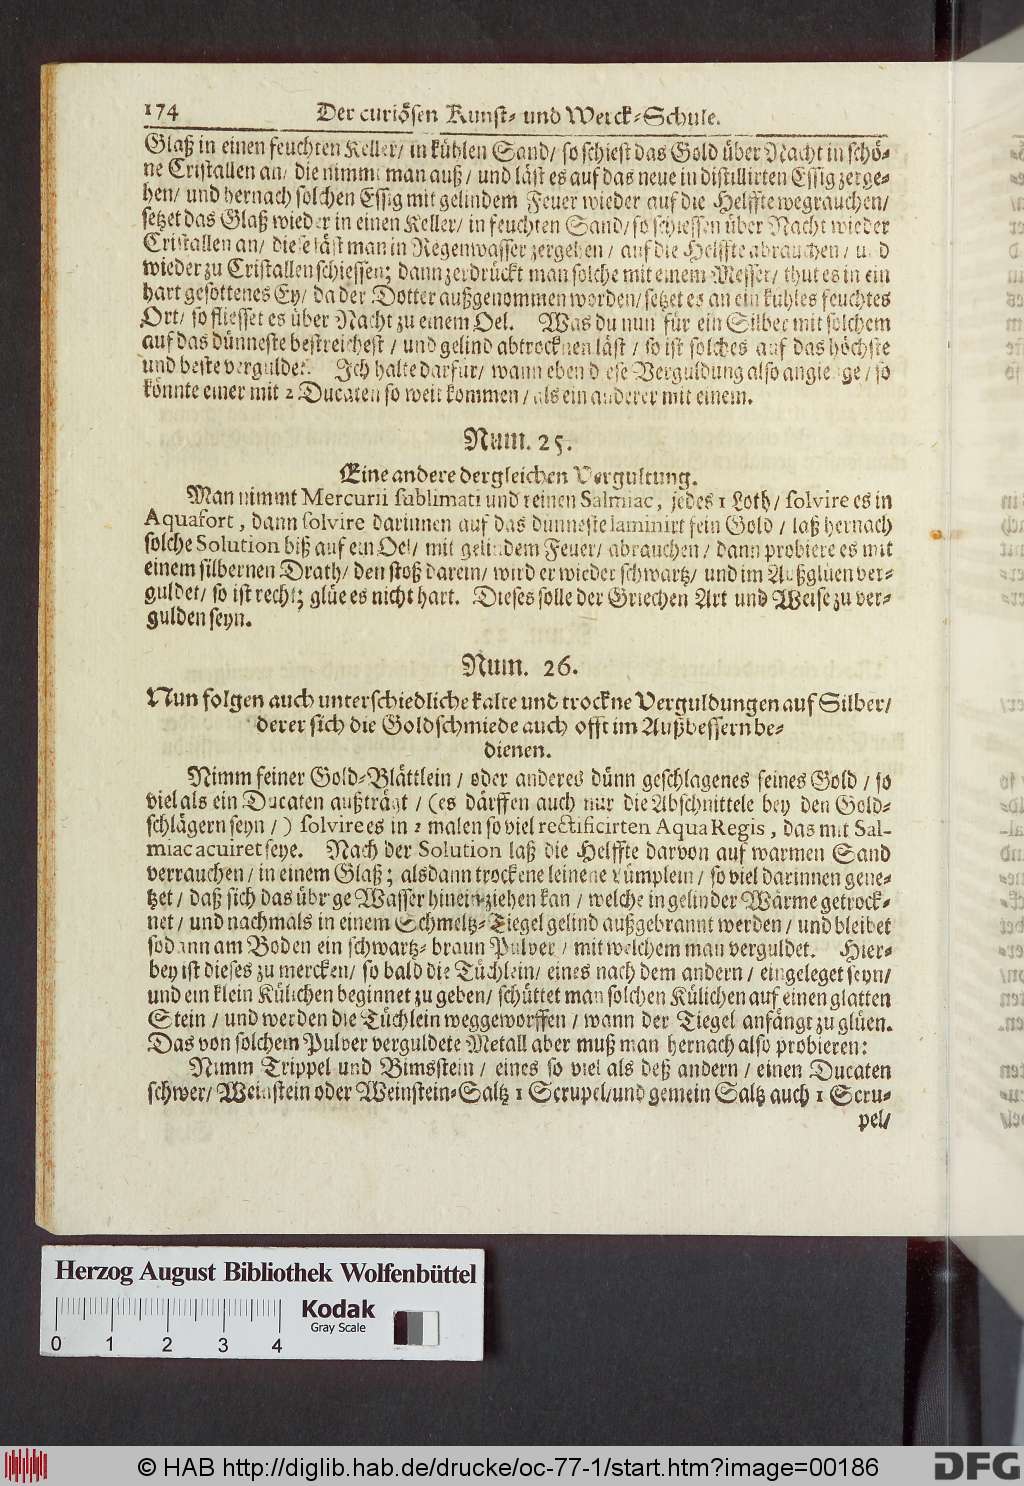 174 Der curiösen Kunst- und Werck-Schule.
Glaß in einen feuchten Keller/ in kühlen Sand/ so schiest das Gold über Nacht in schö-
ne Cristallen an/ die nimmt man auß/ und läst es auf das neue in distillirten Essig zerge-
hen/ und hernach solchen Essig mit gelindem Feuer wieder auf die Helffte wegrauchen/
setzet das Glaß wieder in einen Keller/ in feuchten Sand/ so schiessen über Nacht wieder
Cristallen an/ diese läst man in Regenwasser zergehen/ auf die Helffte abrauchen/ und
wieder zu Cristallen schiessen; dann zerdrückt man solche mit einem Messer/ thut es in ein
hart gesottenes Ey/ da der Dotter außgenommen worden/ setzet es an ein kühles feuchtes
Ort/ so fliesset es über Nacht zu einem Oel. Was du nun für ein Silber mit solchem
auf das dünneste bestreichest/ und gelind abtrocknen läst/ so ist solches auf das höchste
und beste verguldet. Ich halte darfür/ wann eben diese Verguldung also angienge/ so
könnte einer mit 2 Ducaten so weit kommen/ als ein anderer mit einem.
Num. 25.
Eine andere dergleichen Vergultung.
Man nimmt Mercurii sublimati und reinen Salmiac, jedes 1 Loth/ solvire es in
Aquafort, dann solvire darinnen auf das dünneste laminirt fein Gold/ laß hernach
solche Solution biß auf ein Oel/ mit gelindem Feuer/ abrauchen/ dann probiere es mit
einem silbernen Drath/ den stoß darein/ wird er wieder schwartz/ und im Außglüen ver-
guldet/ so ist recht; glüe es nicht hart. Dieses solle der Griechen Art und Weise zu ver-
gulden seyn.
Num. 26.
Nun folgen auch unterschiedliche kalte und trockne Verguldungen auf Silber/
derer sich die Goldschmiede auch offt im Außbessern be-
dienen.
Nimm feiner Gold-Blättlein/ oder anderes dünn geschlagenes feines Gold/ so
viel als ein Ducaten außträgt/ (es därffen auch nur die Abschnittele bey den Gold-
schlägern seyn/) solvire es in 2 malen so viel rectificirten Aqua Regis, das mit Sal-
miac acuiret seye. Nach der Solution laß die Helffte darvon auf warmen Sand
verrauchen/ in einem Glaß; alsdann trockene leinene Lümplein/ so viel darinnen gene-
tzet/ daß sich das übrige Wasser hinein ziehen kan/ welche in gelinder Wärme getrock-
net/ und nachmals in einem Schmeltz-Tiegel gelind außgebrannt werden/ und bleibet
sodann am Boden ein schwartz-braun Pulver/ mit welchem man verguldet. Hier-
bey ist dieses zu mercken/ so bald die Tüchlein/ eines nach dem andern/ eingeleget seyn/
und ein klein Külichen beginnet zu geben/ schüttet man solchen Külichen auf einen glatten
Stein/ und werden die Tüchlein weggeworffen/ wann der Tiegel anfängt zu glüen.
Das von solchem Pulver verguldete Metall aber muß man hernach also probieren:
Nimm Trippel und Bimsstein/ eines so viel als deß andern/ einen Ducaten
schwer/ Weinstein oder Weinstein-Saltz 1 Scrupel/ und gemein Saltz auch 1 Scru-
pel/
Herzog August Bibliothek Wolfenbüttel
Kodak
Gray Scale
0 1 2 3 4
© HAB http://diglib.hab.de/drucke/oc-77-1/start.htm?image=00186
DFG